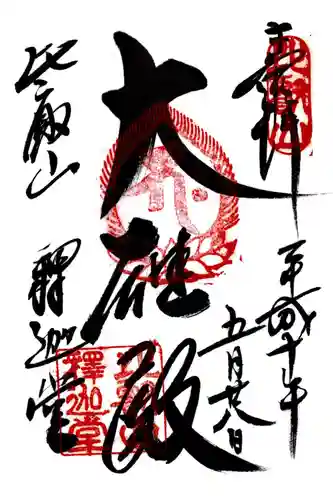 奉拝
平成十年
五月廿八日
大雄殿
比叡山
釋迦堂
釋迦堂